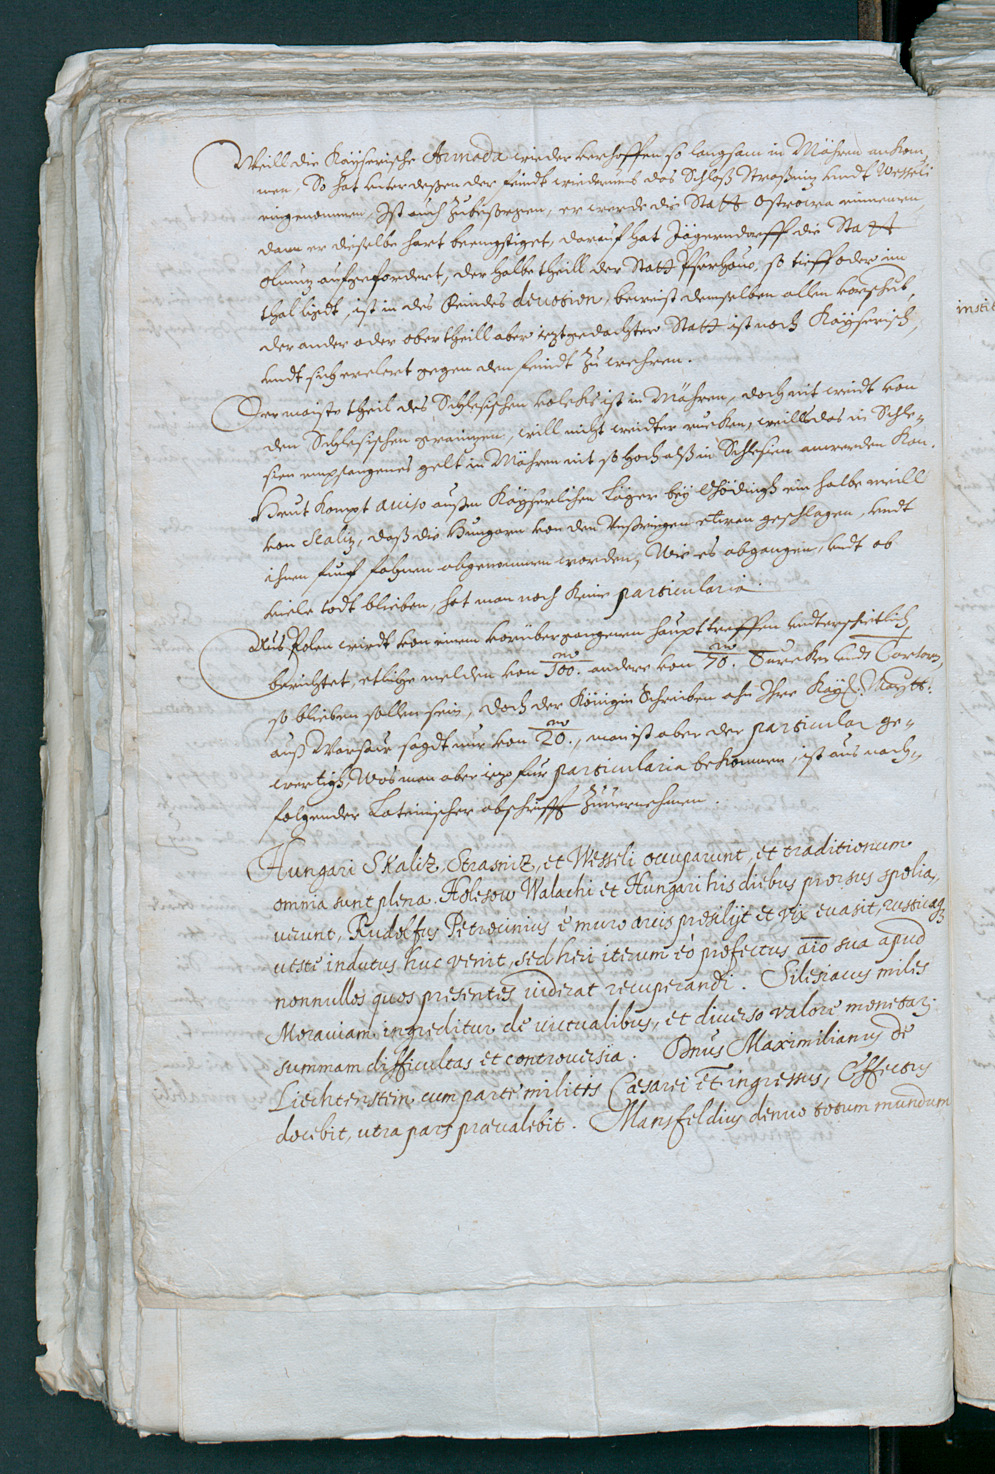 Weill die Kayserische Armada wieder verhoffen so langsam in Mähren ankom¬
men, So hat unter deßen der feindt wiederumb das Schloß Straßniz vndt Wesseli
eingenommen, Ist auch Zubesorgen, er werde die Statt Ostrowa einnemen,
dann er dieselbe hart beengstiget, darauf hat Jägerndorff die Statt
auffgefordert, der halbe theill der Statt so tieff oder im
thal ligdt, ist in des feindes deuotion, beweist demselben allen vorschub,
der ander oder ober theill aber iezt gedachter Statt ist noch Kayserisch,
vndt sich erclert gegen dem feindt Zu wehren.
Der maiste theil des Schlesischen volcks ist in Mähren, doch nit weidt von
den Schlesischen graniczen, will nicht weidter rucken, weill das in Schle¬
sien empfangenes gelt in Mähren nit so hoch alß in Schlesien anwerden kan.
Heut kompt auiso außm Kayserlichen Läger bey Göding ein halbe meill
von Scaliz, daß die Hungarn von den Unßerigen etwan geschlagen, vndt
ihnen funf fahnen abgenommen worden, Wie es abgangen, vndt ob
viele todt blieben, hat man noch keine particularia.
Aus Polen wirdt von einem vorüber gangenen haupttreffen vndterschietlich
berichtet, etliche melden von 100. andere von 70. Türcken vndt Tartarn,
so blieben sollen sein, doch der Königin Schreiben ahn Ihre Kays. Maystt:
auß Warschau sagdt nur von 20., man ist aber der particular ge¬
wertig, Was man aber iezo für particularia bekommen, ist aus nach¬
folgender Lateinischer abschrifft Zuuernehmen.
Hungari Skaliz, Strasniz, et Wesseli occuparunt, et traditionum
omnia sunt plena. Holesow Walachi et Hungari his diebus prorsus spolia¬
uerunt, Rudolfus Petrounius è muro arcis presilijt et vix euasit, rusticaq
ueste indutus huc venit, sed heri iterum eò profectus, aio sua apud
nonnullos quos presentes uiderat recuperandi. Silesiacus miles
Morauiam ingreditur de uictualibus, et diuerso valore monetar.
summam difficultas et controuersia. Dnus Maximilianus de
Liechtenstein cum parte militis Caesarei et ingressus, Effectus
docebit, utra pars praeualebit. Mansfeldius denuo totum mundum